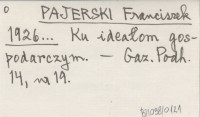 o PAJERSKI Franciszek
1926... Ku ideałom gos-
podarczym. — Gaz. Podh.
14, nr 19.